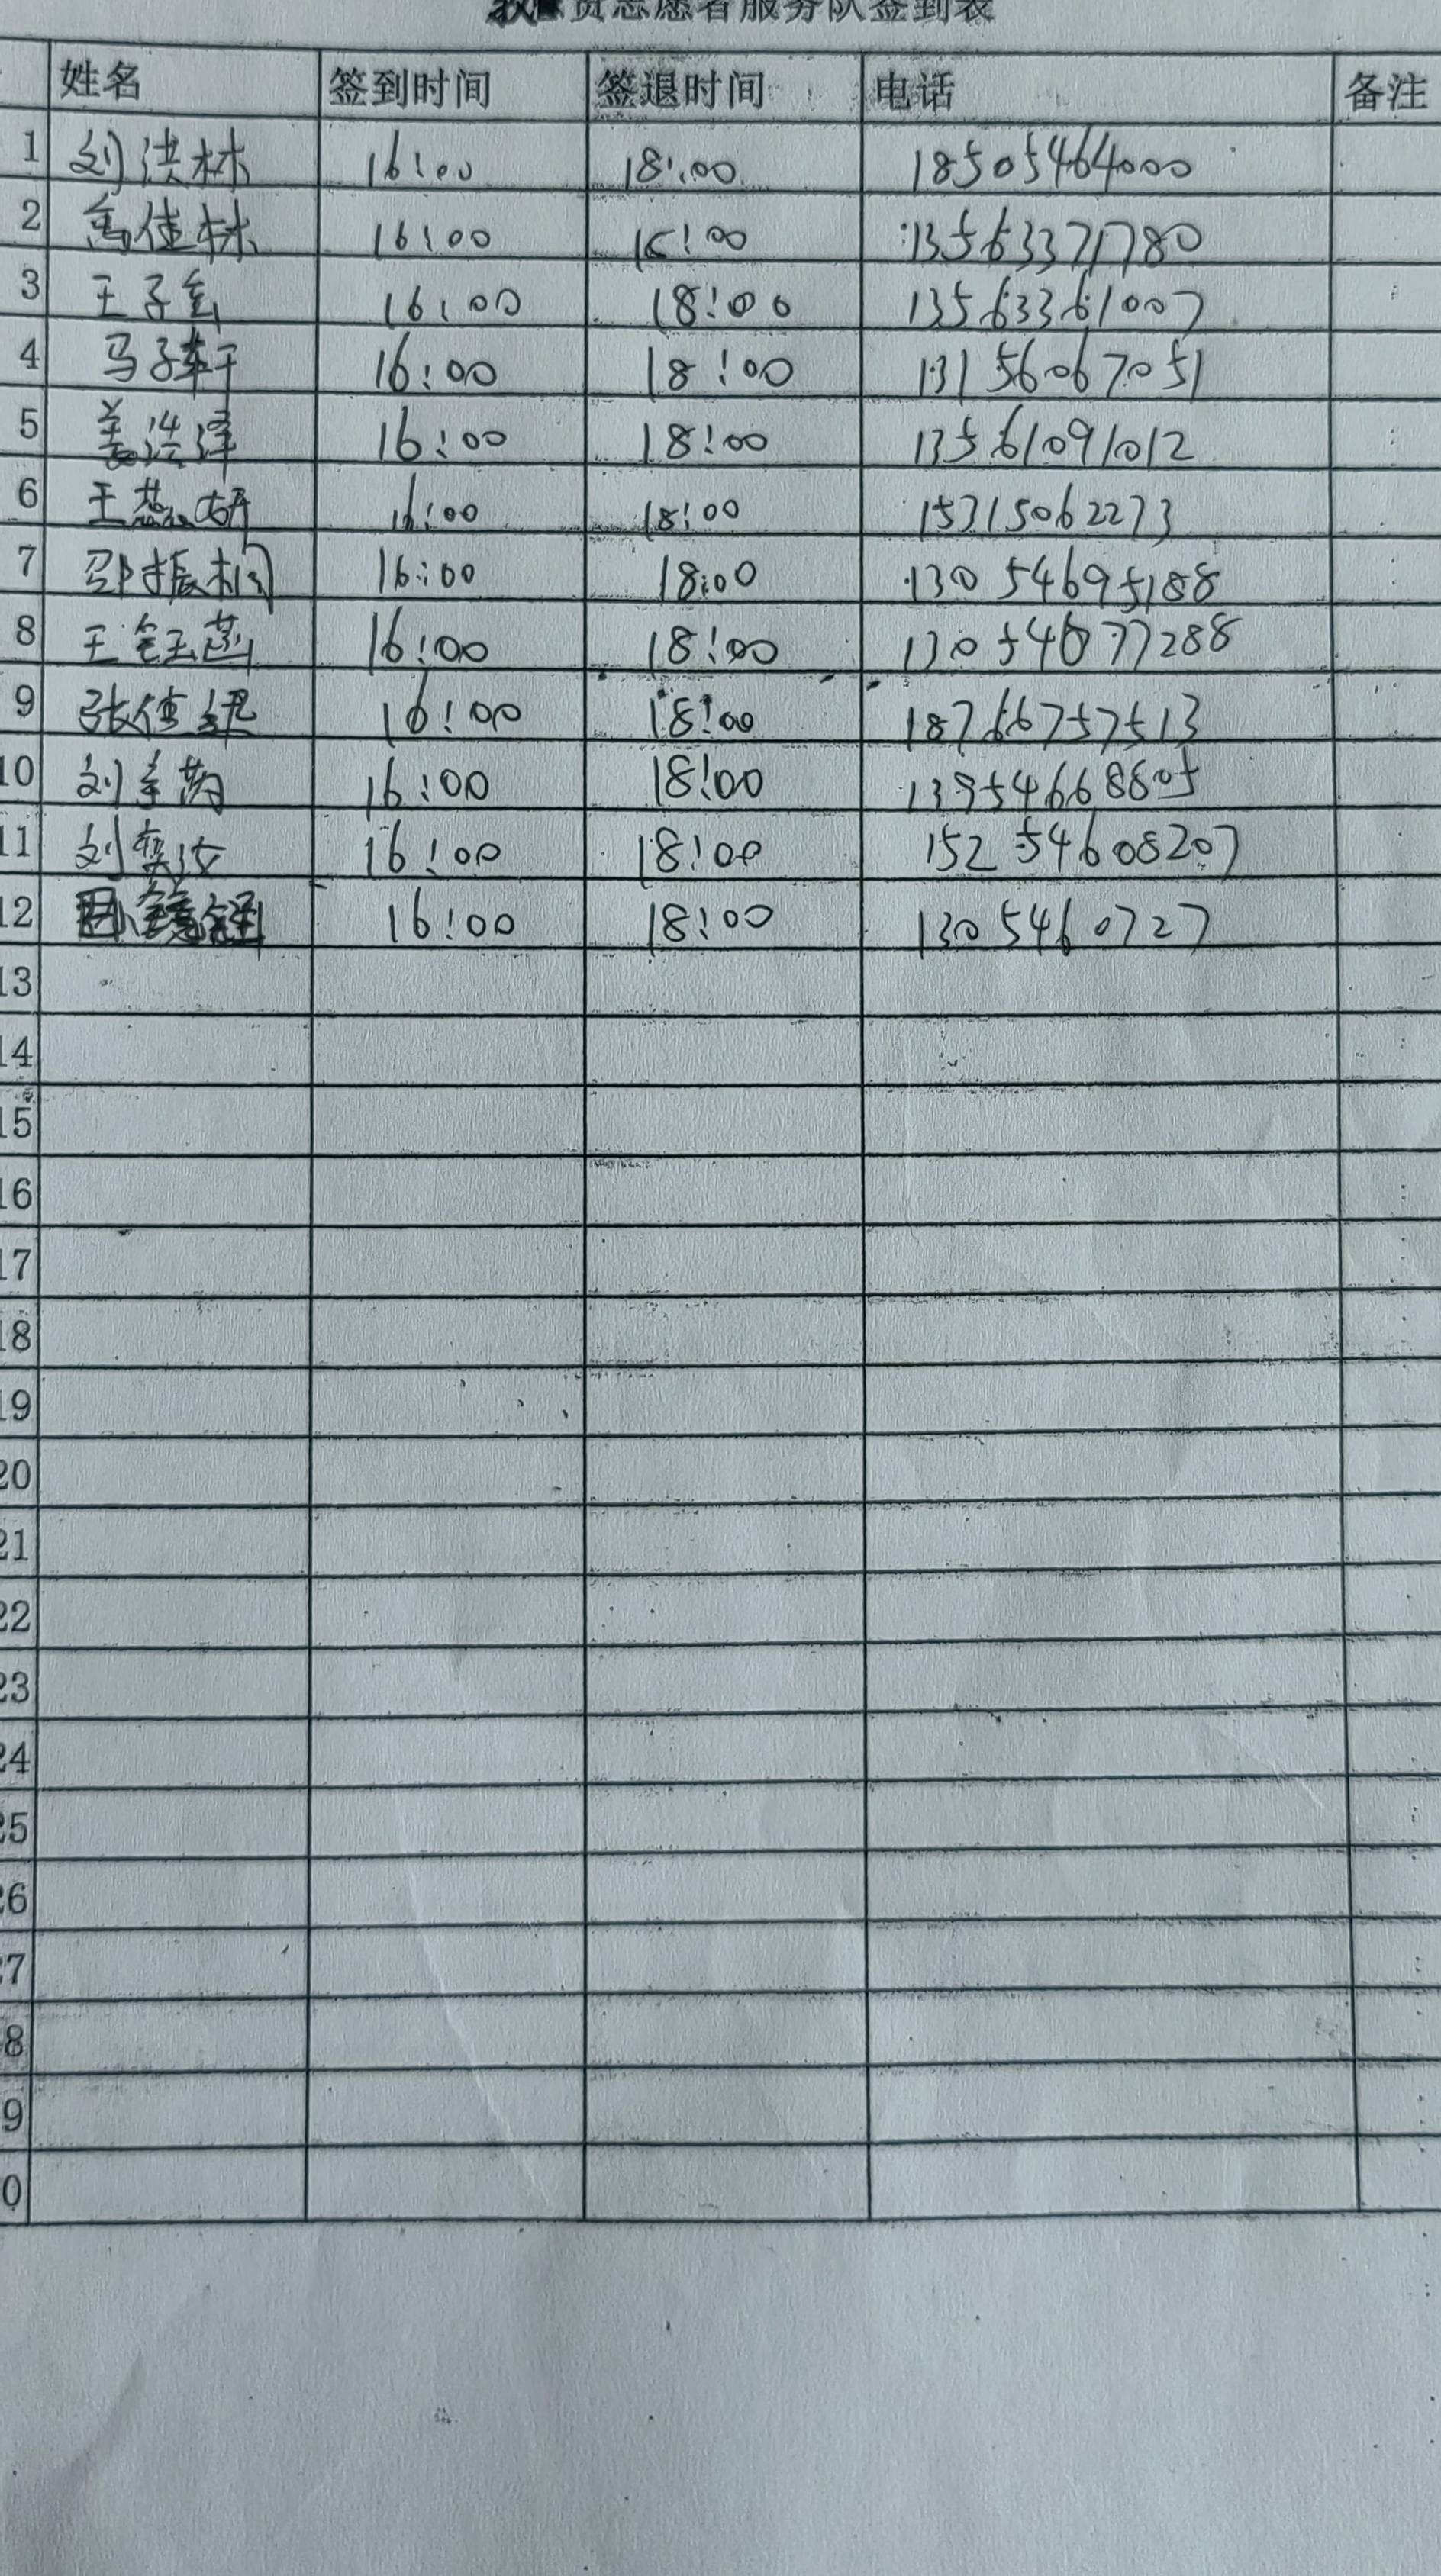 贵志愿者服务队签到表
姓名 签到时间 签退时间 电话 备注
1 刘洪林 16:00 18:00 18505464000
2 佳林 16:00 16:00 13563371780
3 王子 16:00 18:00 13563361007
4 马子轩 16:00 18:00 13156067051
5 姜浩泽 16:00 18:00 13561091012
6 王蕊妍 16:00 18:00 15315062273
7 邵振桐 16:00 18:00 13054695188
8 王钰菡 16:00 18:00
9 张倢 16:00 18:00 18766757513
10 刘 16:00 18:00 13954668805
11 刘奕汝 16:00 18:00 152 54608207
12 16:00 18:00 1305460727
13
14
15
16
17
18
19
20
21
22
23
24
25
26
27
8
9
0